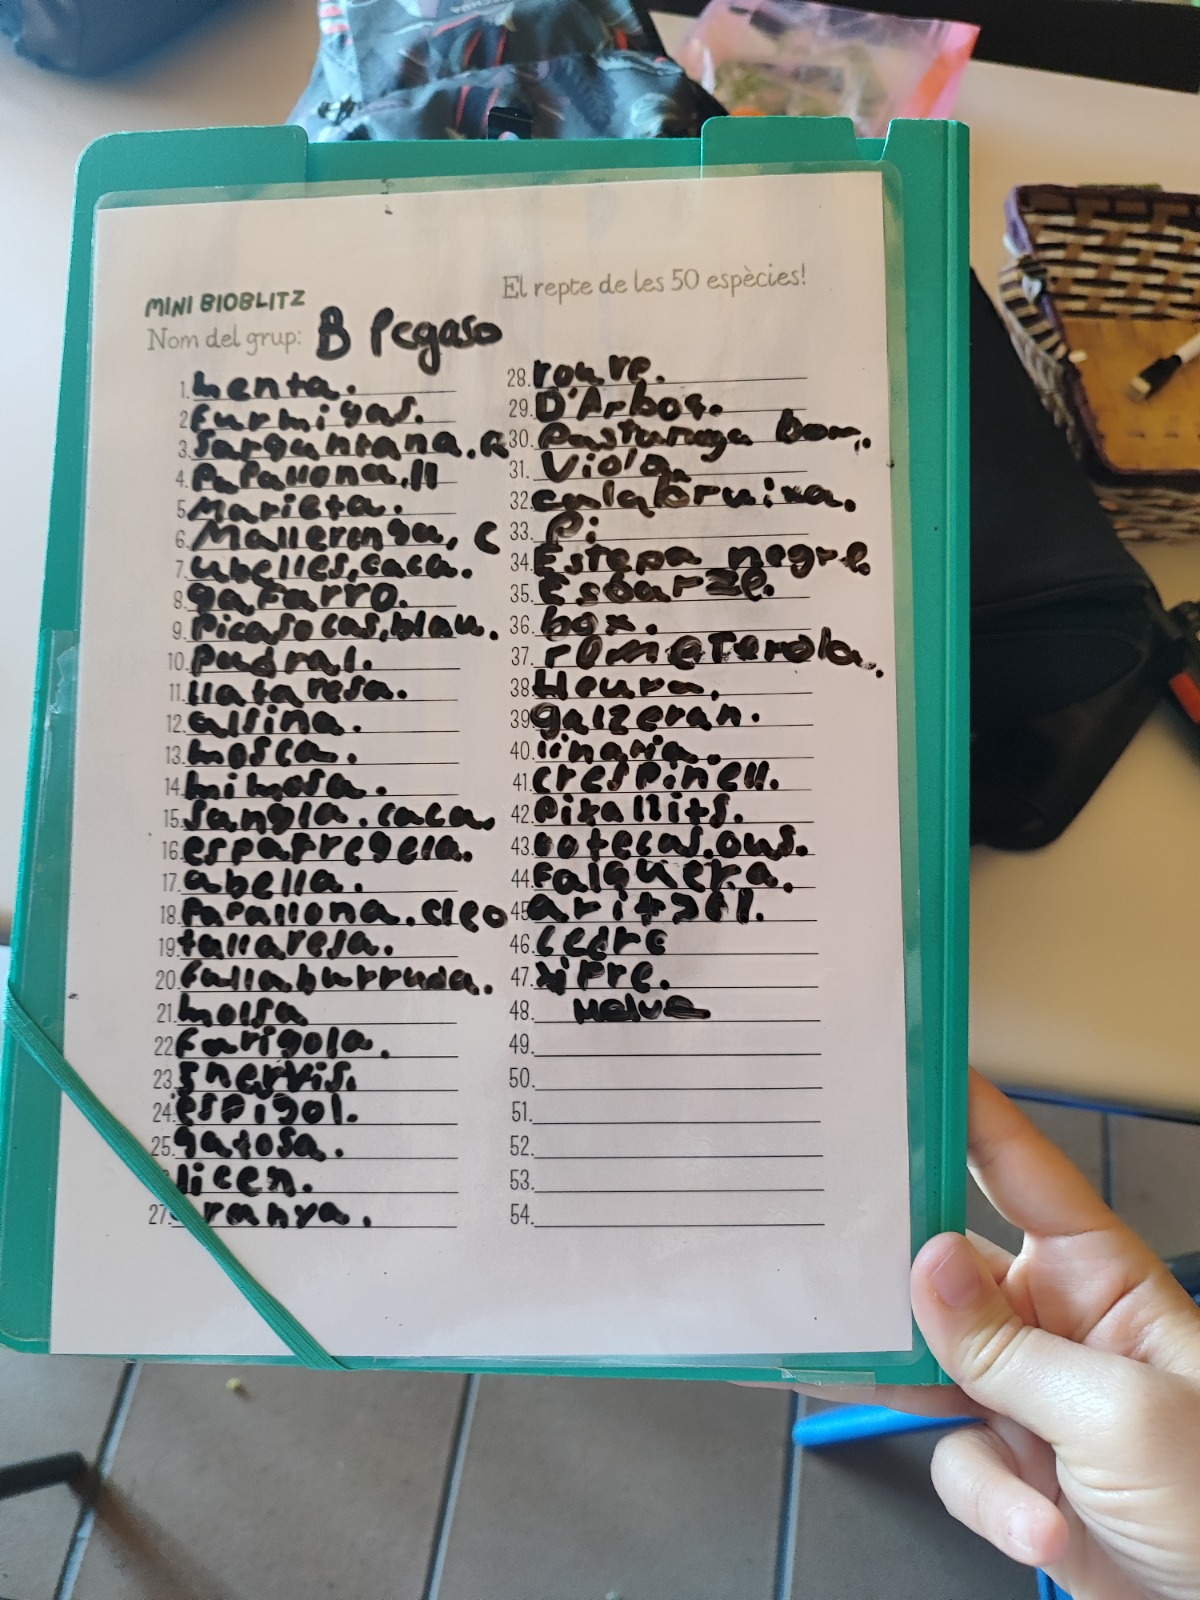 El repte de les 50 espècies!
MINI BIOBLITZ
Nom del grup: B Pegaso
1. menta.
2. furmigas.
3. Sarguntana. R
4. PaPallona, ll
5. Marieta.
6. Mallerenga, C
7. abelles, caca.
8. gafarro.
9. Picasocas, blau.
10. pudral.
11. llataresa.
12. alsina.
13. mosca.
14. mimosa.
15. Sangla. caca.
16. esparreguera.
17. abella.
18. PaPallona. cleo
19. tallaresa.
20. fallaburruda.
21. molsa
22. Farigola.
23.
24. espigol.
25. gatosa.
licen.
27. ranya.
28. roure.
29. D'Arbos.
30. Pastanaga bor.
31. Viola.
32. calabruixa.
33. Pi
34. Estepa negre
35. Esbarze.
36. box.
37. romaTerola.
38. Heura.
39. galzeran.
40.
41. crespinell.
42. Pixallits.
43. ous.
44. Falguera.
45. aritjol.
46. cedre
47. xiPre.
48. Malva
49.
50.
51.
52.
53.
54.